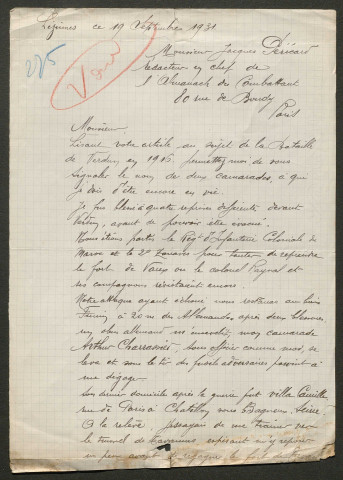 Lézinnes ce 19 Septembre 1931
275
Vu
Monsieur Jacques Péricard
rédacteur en chef de
l'Almanach du Combattant
80 rue de Bondy
Paris
Monsieur
Lisant votre article au sujet de la bataille
de Verdun en 1916, permettez moi de vous
signaler le nom de deux camarades, à qui
je dois d'être encore en vie
Je fus blessé à quatre reprises différentes devant
Verdun, avant de pouvoir être évacué.
Nous étions partis le Rég. d'Infanterie Coloniale du
Maroc et le 2e Zouaves pour tenter de reprendre
le fort de Vaux ou le colonel Raynal et
ses compagnons résistaient encore.
Notre attaque ayant échoué nous restions au bois
Fumin, à 20 m des Allemands, après deux blessures,
un obus allemand m'ensevelit, mon camarade
Arthur Charrassier, sous officier comme moi, se
lève et sous le tir des fusils adversaires parvint à
me dégager.
Son dernier domicile après la guerre fut villa Camille
rue de Paris à Chatillon sous Bagneux. Seine.
A la relève, j'essayais de me traîner vers
le tunnel de Tavannes, espérant m'y reposer
un peu avant